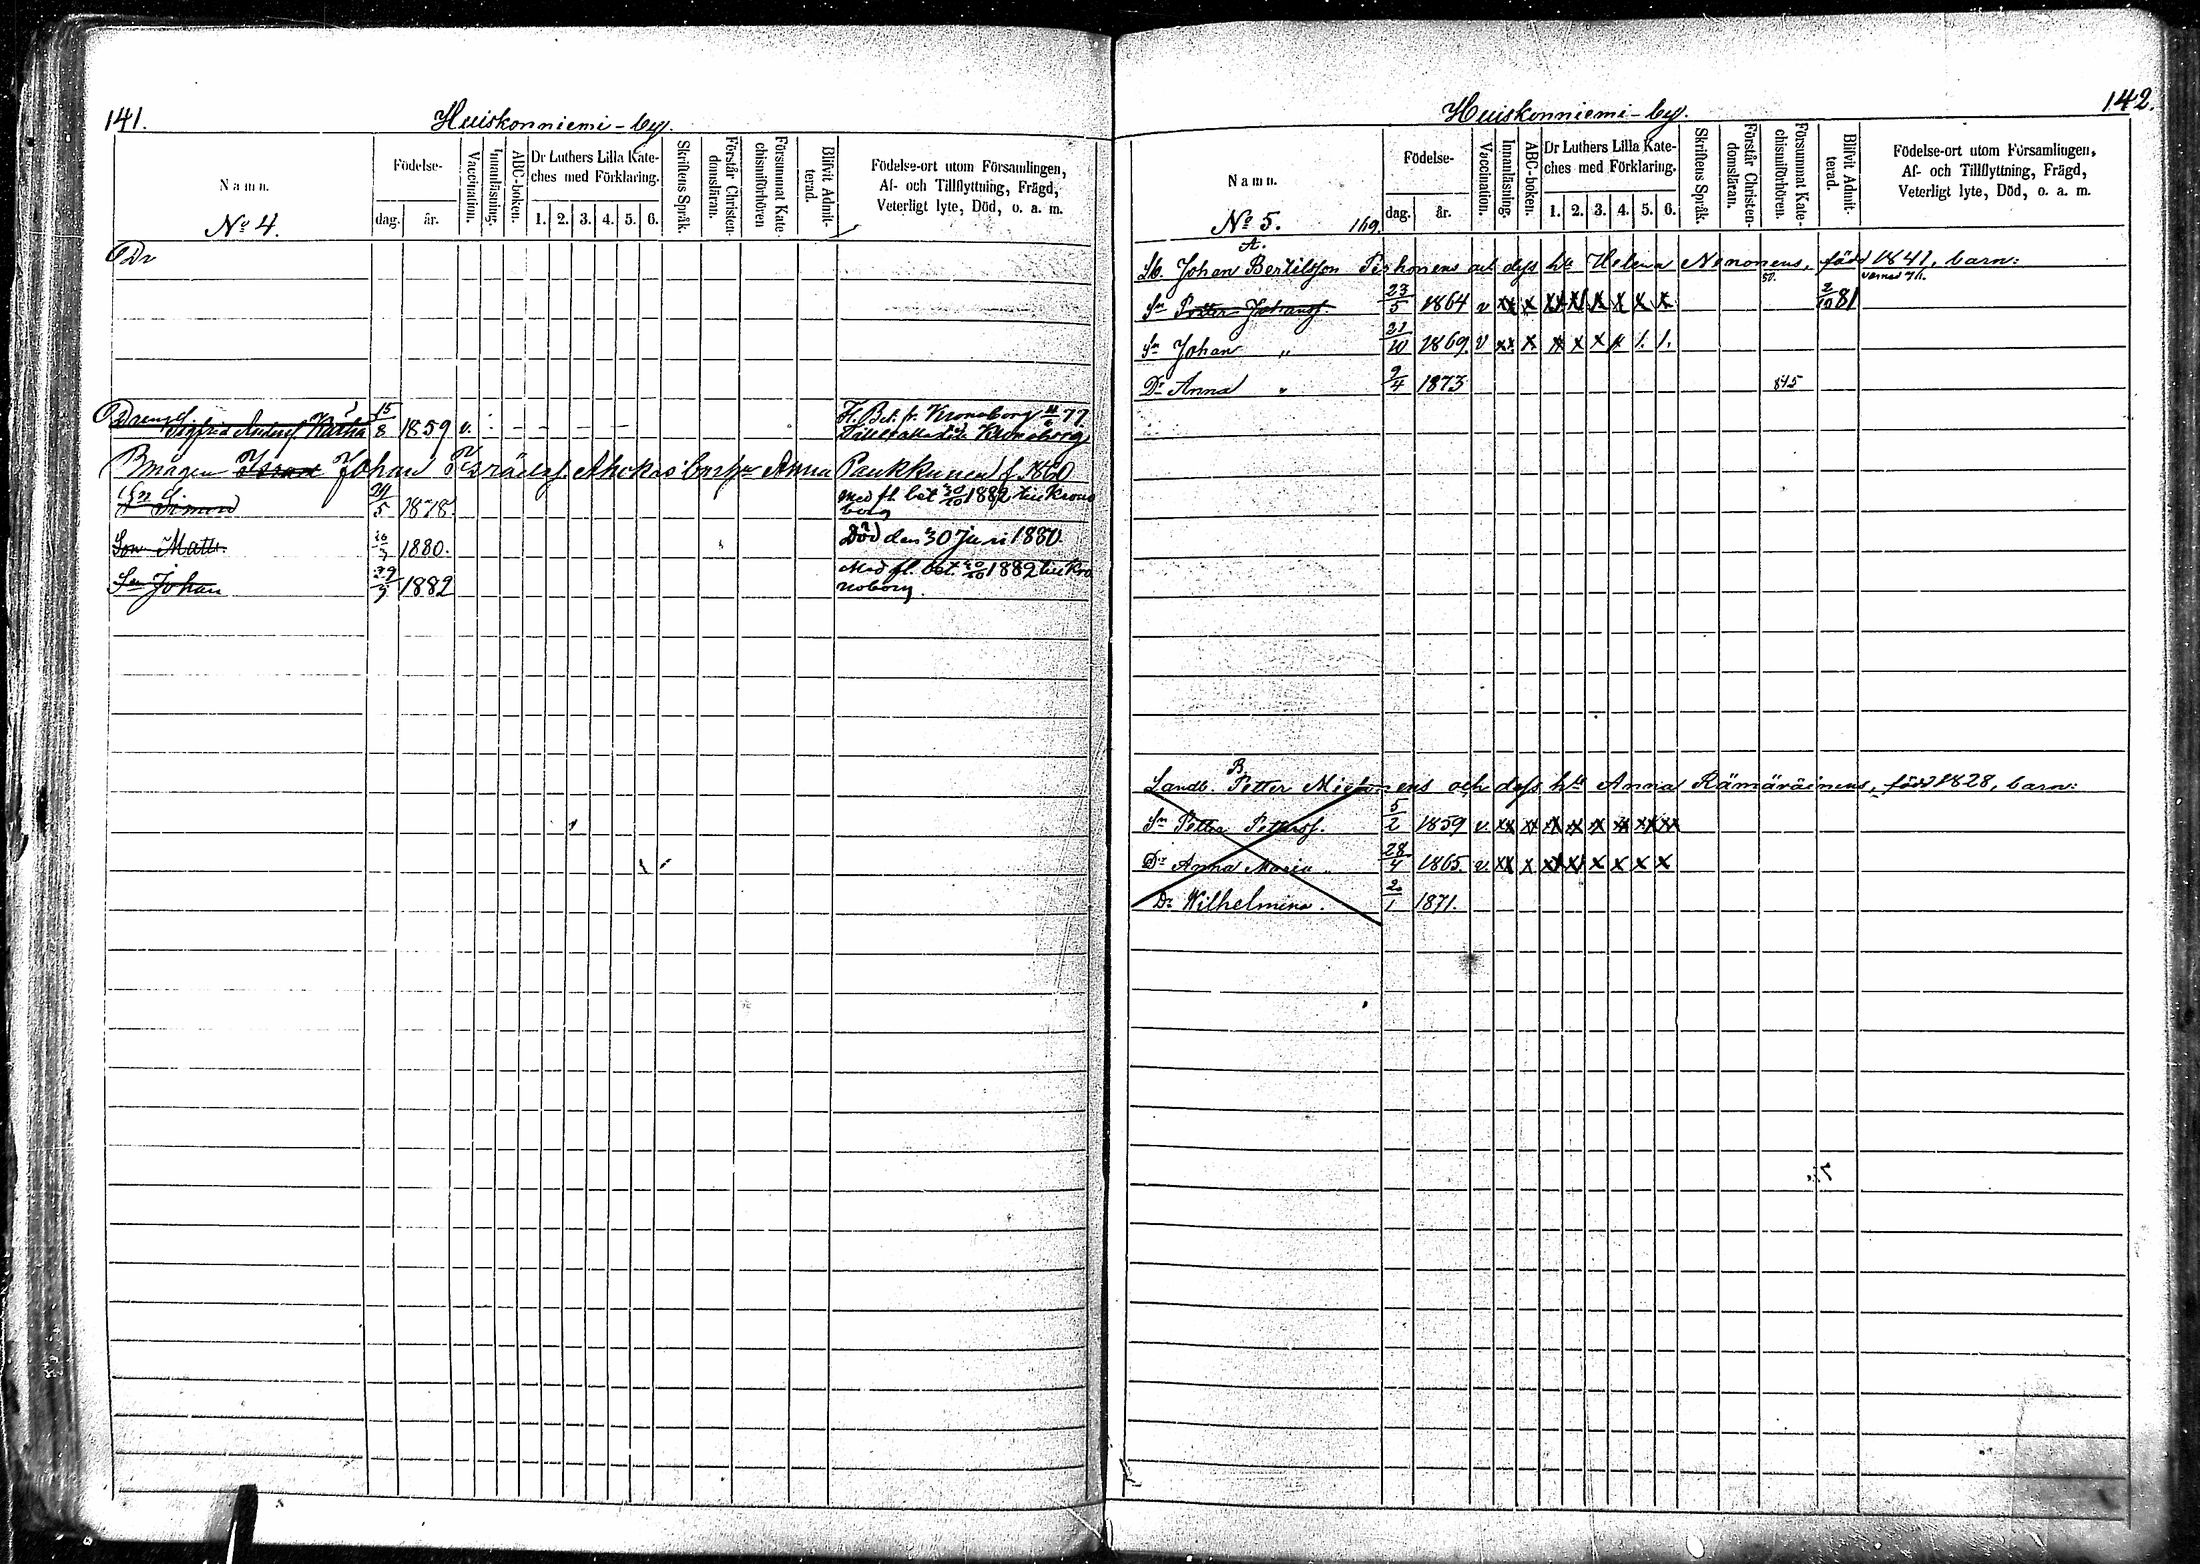 141.
Huiskonniemi-by.
Namn.
No 4.
Födelse-
dag.
år.
Vaccination.
Innanläsning.
ABC-boken.
Dr Luthers Lilla Kate-
ches med Förklaring.
1. 2. 3. 4. 5. 6.
Skriftens Språk.
Förstår Christen-
domsläran.
Försummat Kate-
chismiförhören
Blifvit Admit-
terad.
Födelse-ort utom Församlingen,
Af- och Tillflyttning, Frägd,
Veterligt lyte, Död, o. a. m.
Dr
Drengen
Sigfrid Andersf 15/8 1859 v. Fl. Bet. fr. Kronoborg 77.
Kronoborg
Mågen Johan Anna Paukkunen f. 1860
Sn Simon 24/5 1878. med fl. bet 30/10 1882 till Krono
borg
Son Matts. 1880. Död den 30 Juni 1880.
Sn Johan 29/9 1882 Med fl. bet. 30/10 1882 till Kro
noborg.
142.
Huiskonniemi-by.
Namn.
No 5. 169
Födelse-
dag.
år.
Vaccination.
Innanläsning.
ABC-boken.
Dr Luthers Lilla Kate-
ches med Förklaring.
1. 2. 3. 4. 5. 6.
Skriftens Språk.
Förstår Christen-
domsläran.
Försummat Kate-
chismiförhören.
Blifvit Admit-
terad.
Födelse-ort utom Församlingen,
Af- och Tillflyttning, Frägd,
Veterligt lyte, Död, o. a. m.
A.
Lb. Johan Bertilsson och dess h:u Helena Nenonens, född 1841, barn:
Sn Petter Johansf. 23/5 1864 v xx x xx xx x x x x 2/10 81
Sn Johan " 21/10 1869. v xx x x x x x 1. 1.
Dr Anna " 9/4 1873 845
B.
Landb. Petter och dess h:u Anna Rämäräinens, född 1828, barn:
Sn Petter Pettersf. 5/2 1859 v. xx xx xx xx x xx xx xx
Dr Anna Maria " 28/4 1865. v. xx x xx xx x x x x
Dr Wilhelmina. 1871.